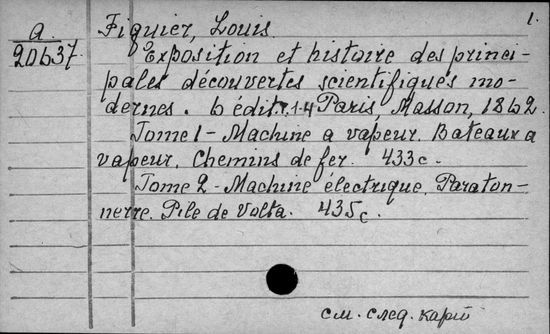 1.
a. Figuier, Louis.
20637. Exposition et histoire des princi-
pales découvertes scientifiques mo-
dernes. 6 édit. T. 1-4 Paris, Masson, 1862.
Tome 1 - Machine a vapeur. Bateaux a
vapeur. Chemins de fer. 433 c.
Tome 2 - Machine électrique. Paraton-
nerre. Pile de Volta. 435 c.
см. след. карт